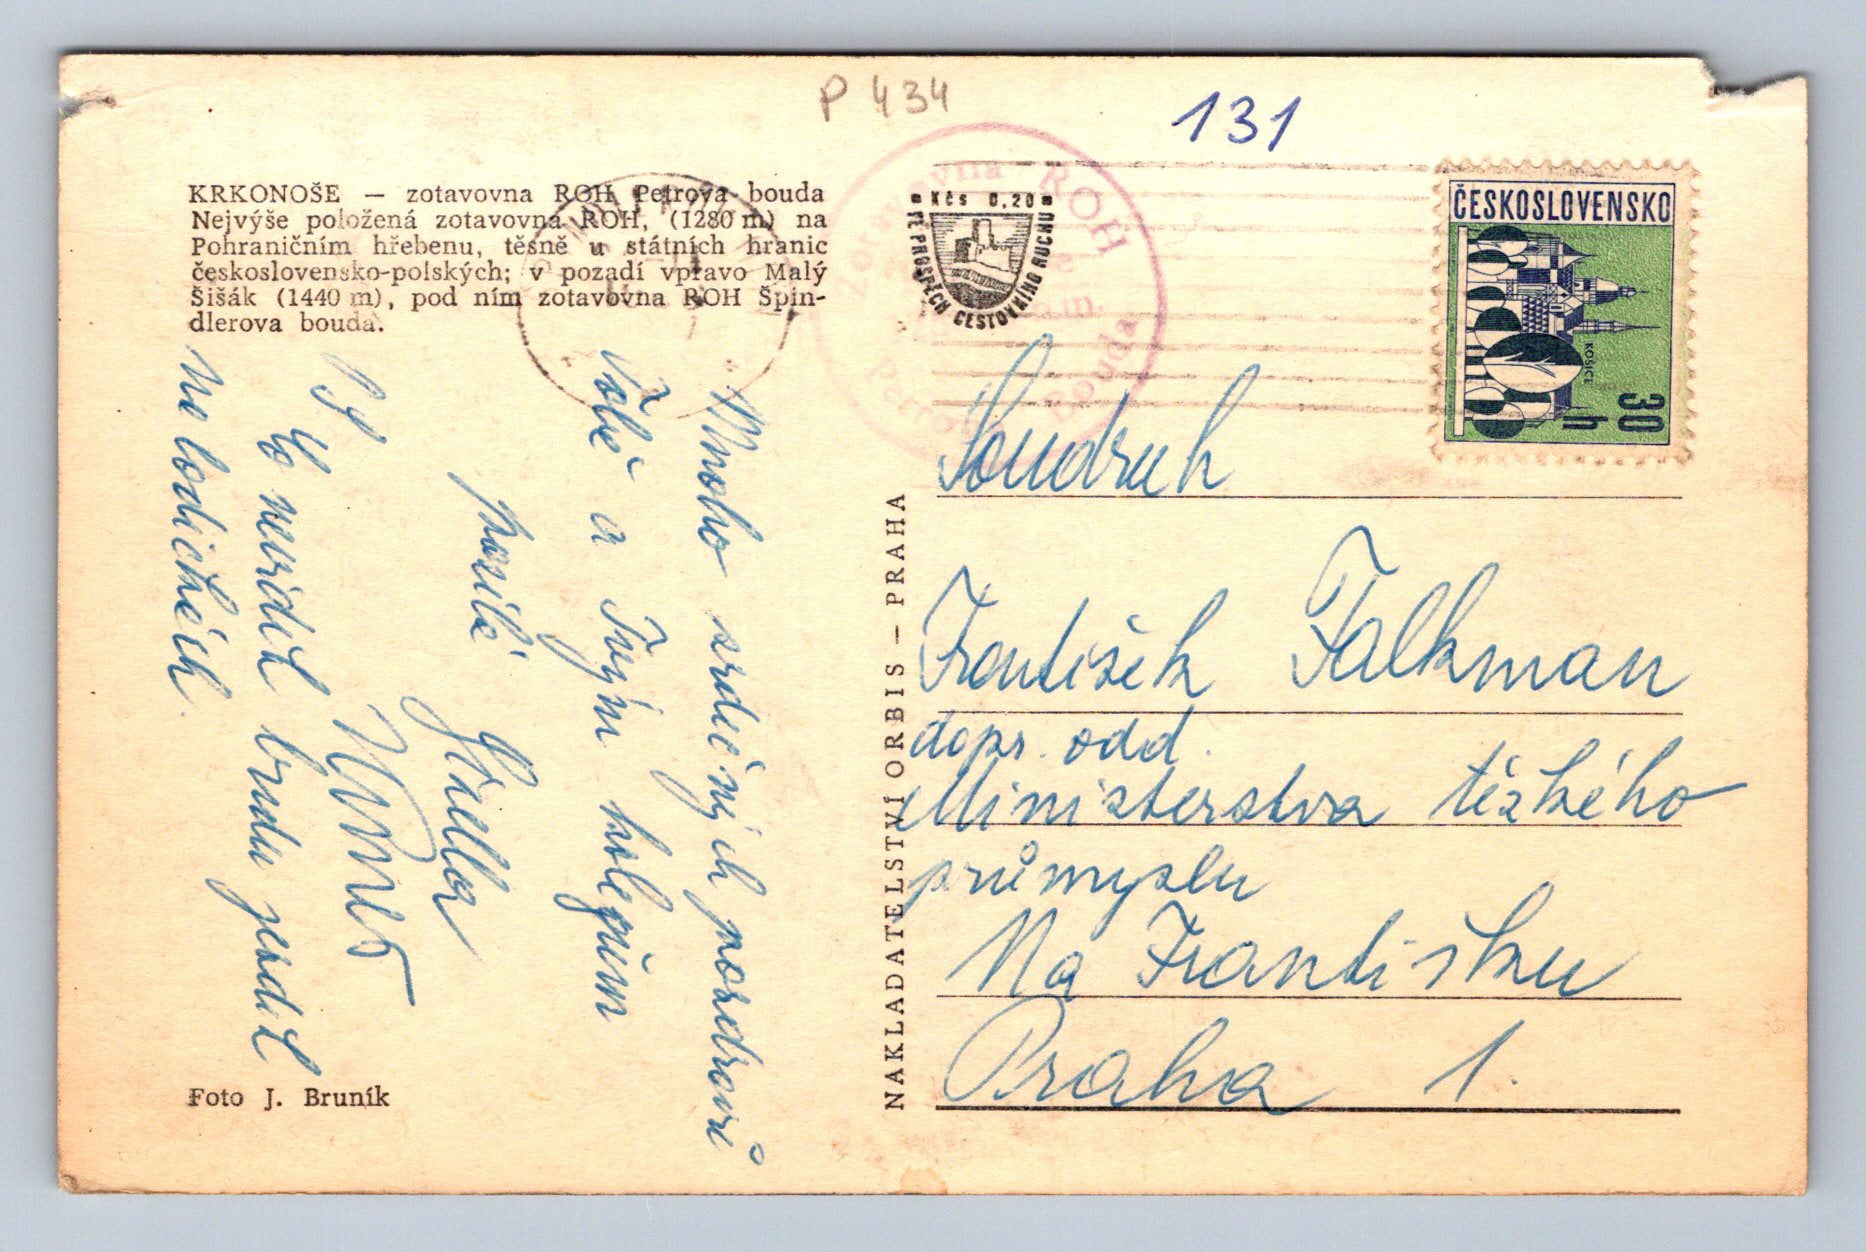 P 434
131
KRKONOŠE — zotavovna ROH Petrova bouda
Nejvýše položená zotavovna ROH, (1280 m) na
Pohraničním hřebenu, těsně u státních hranic
československo-polských; v pozadí vpravo Malý
Šišák (1440 m), pod ním zotavovna ROH Špin-
dlerova bouda.
Mnoho srdečných pozdravů
Tobě a Tvým kolegům
posílá
PS
To neviděl budu jezdit
na lodičkách.
Foto J. Bruník
NAKLADATELSTVÍ ORBIS — PRAHA
Kčs 0,20
VE PROSPĚCH CESTOVNÍHO RUCHU
Zotavovna ROH
Petrova bouda
ČESKOSLOVENSKO
KOŠICE
30 h
Soudruh
František Falkman
dopr. odd.
Ministerstva těžkého
průmyslu
Na Františku
Praha 1.